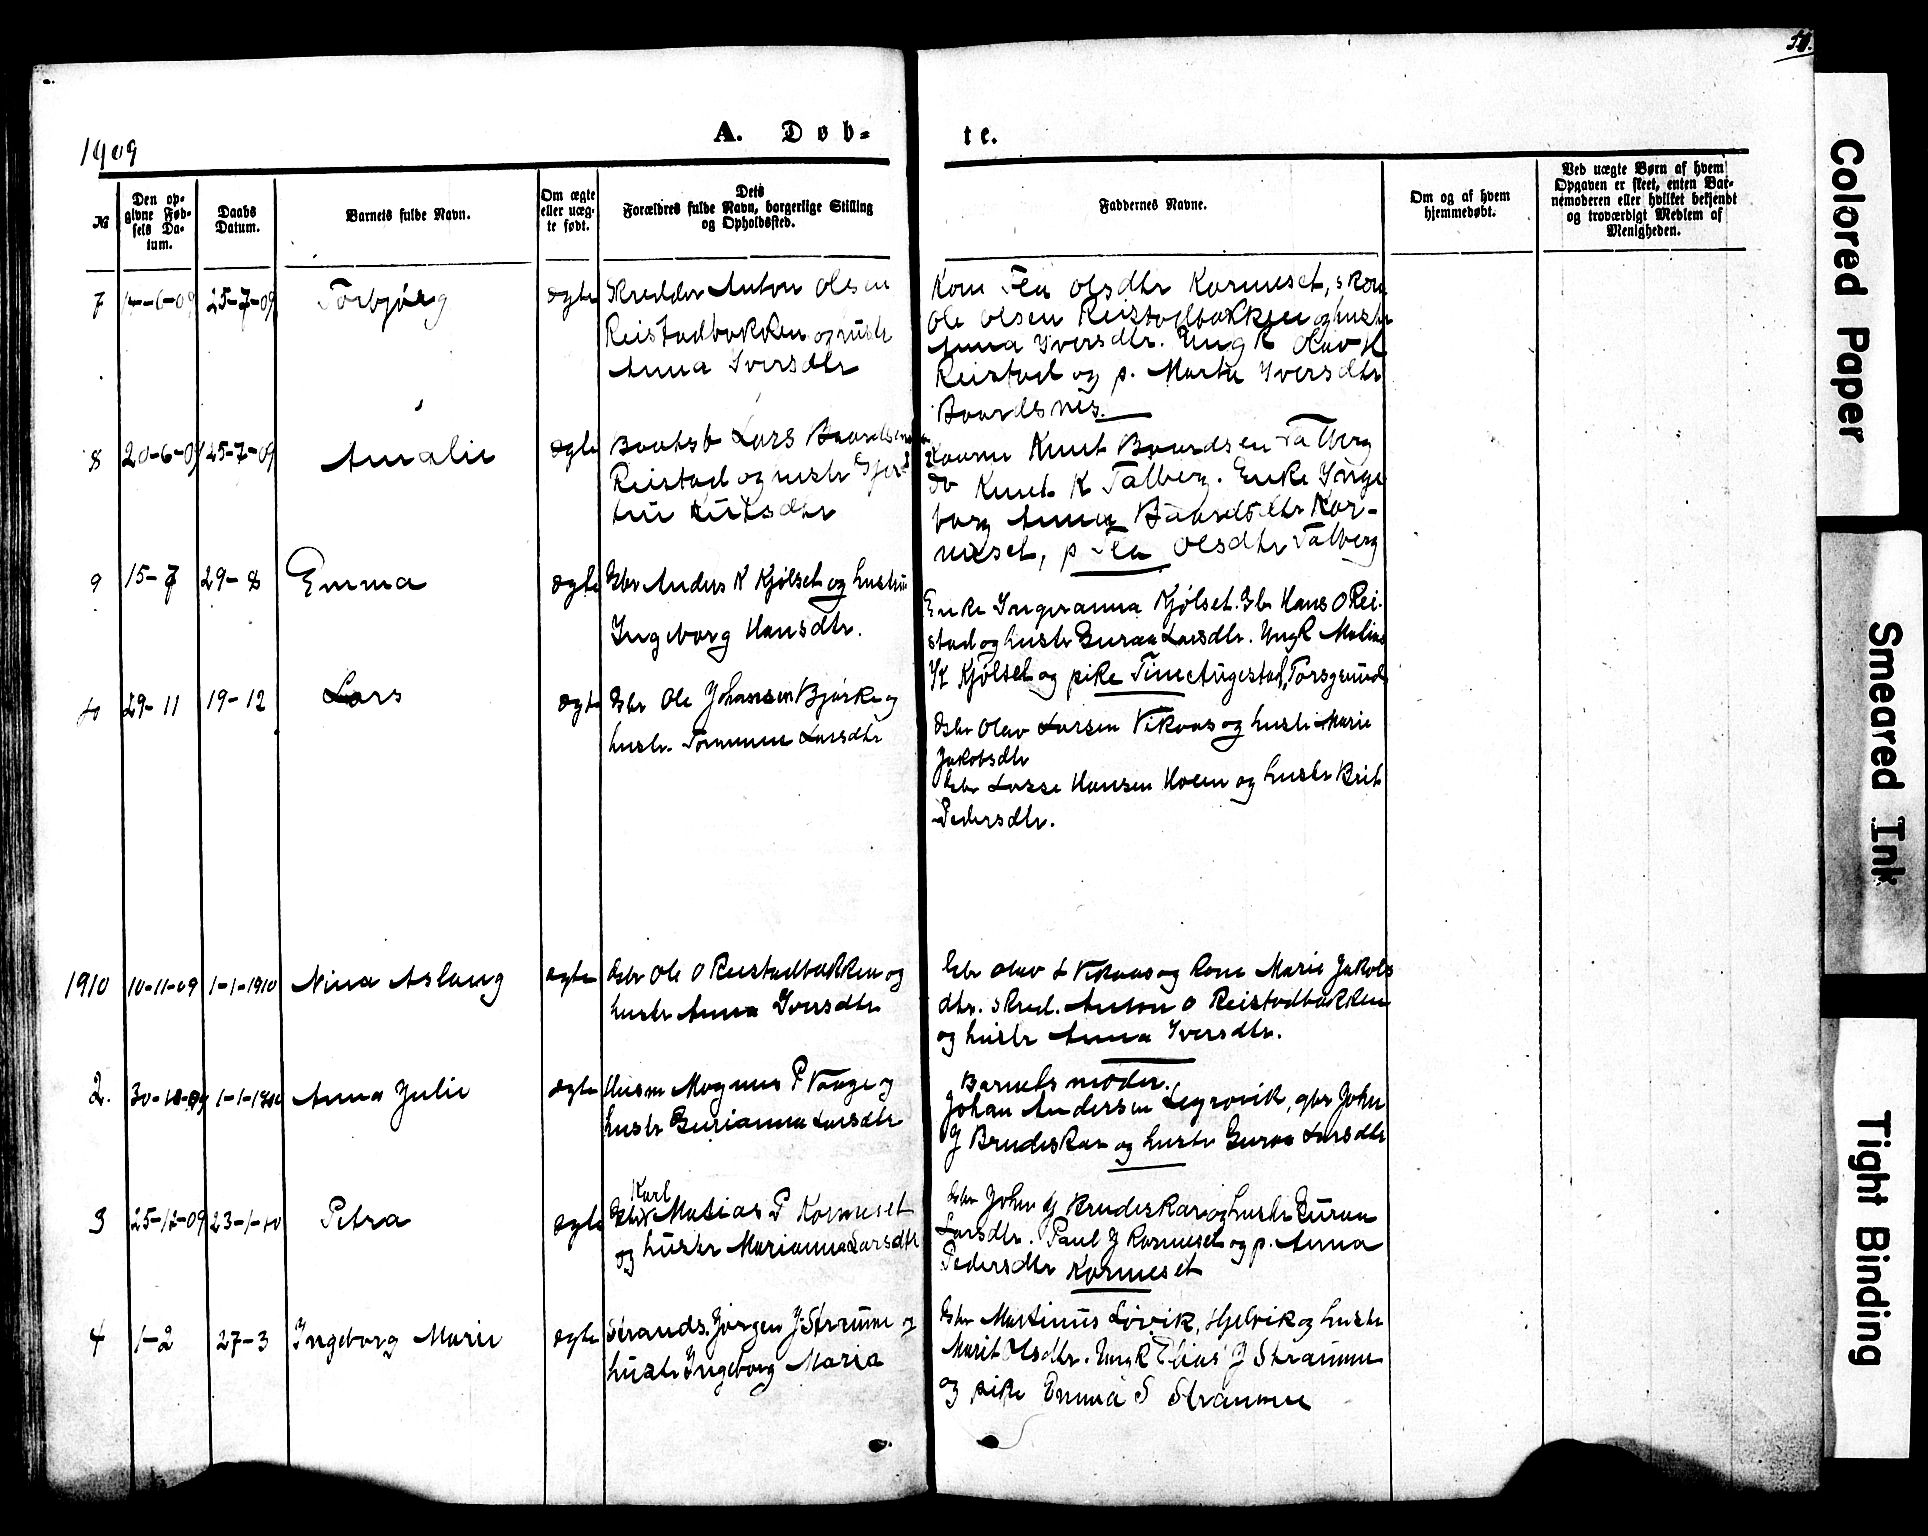 51.
1909
A. Døb-
te.
№
Den op-
givne Fød-
sels Da-
tum.
Daabs
Datum.
Barnets fulde Navn.
Om ægte
eller uæg-
te født.
Dets
Forældres fulde Navn, borgerlige Stilling
og Opholdssted.
Faddernes Navne.
Om og af hvem
hjemmedøbt.
Ved uægte Børn af hvem
Opgaven er skeet, enten Bar-
nemoderen eller hvilket bekjendt
og troværdigt Medlem af
Menigheden.
7 14-6-09 25-7-09 Torbjørg ægte Skredder Anton Olsen
Reistadbakken og hustr
Anna Iversdtr
Kone Olsdtr Karmeset, skom
Ole Olsen Reistadbakken og hustr
Anna Iversdtr. Ungk Olav H
Reistad og p. Marta Iversdtr
Baardsnes.
8 20-6-09 25-7-09 Amalie ægte Baatsb Lars Baardsen
Reistad og hustr Gjer
trü Knutsdtr
Knut Baardsen Talberg
do Knut K Talberg. Enke Inge
borg Anna Baardsdtr Kor-
meset, p Olsdtr Talberg
9 15-7 29-8 Emma ægte Gbr Anders K Kjølset og hustru
Ingeborg Hansdtr.
Enke Ingeranna Kjølset. Gbr Hans O Rei-
stad og hustr Guraa Larsdtr. Ungk Malias
K Kjølset og pike Tine Augestad, Torsgrund
10 29-11 19-12 Lars ægte Gbr Ole Johansen Bjørke og
hustr. Larsdtr
Gbr Olav Larsen Vikaas og hustr Marie
Jakobsdtr
Gbr Lasse Hansen Hoem og hustr Brit
Pedersdtr.
1910 10-11-09 1-1-1910 Nina Aslaug ægte Gbr Ole O Reistadbakken og
hustr Anna Iversdtr
Gbr Olav L Vikaas og kone Marie Jakobs
dtr. skred. Anton O Reistadbakken
og hustr Anna Iversdtr.
2. 30-10-09 1-1-1910 Anna Julie ægte Husm Magnus P Vaage og
hustr Gurianna Larsdtr
Barnets moder.
Johan Andersen Legrovik, gbr John
J Brudeskar og hustr Guraa Larsdtr
3 25-12-09 23-1-10 Petra ægte Gbr Karl Matias P Kormeset
og hustr Marianna Larsdtr
Gbr John J Brudeskar og hustr Guraa
Larsdtr. Paul J Kormeset og p. Anna
Pedersdtr Kormeset
4 1-2 27-3 Ingeborg Marie ægte Strands. Jørgen J Straume og
hustr Ingeborg Maria
Gbr Martinus Løvik, Hjelvik og hustr
Marit Olsdtr. Ungk Elias J Straumme
og pike Emma S Straumme
Colored Paper
Smeared Ink
Tight Binding